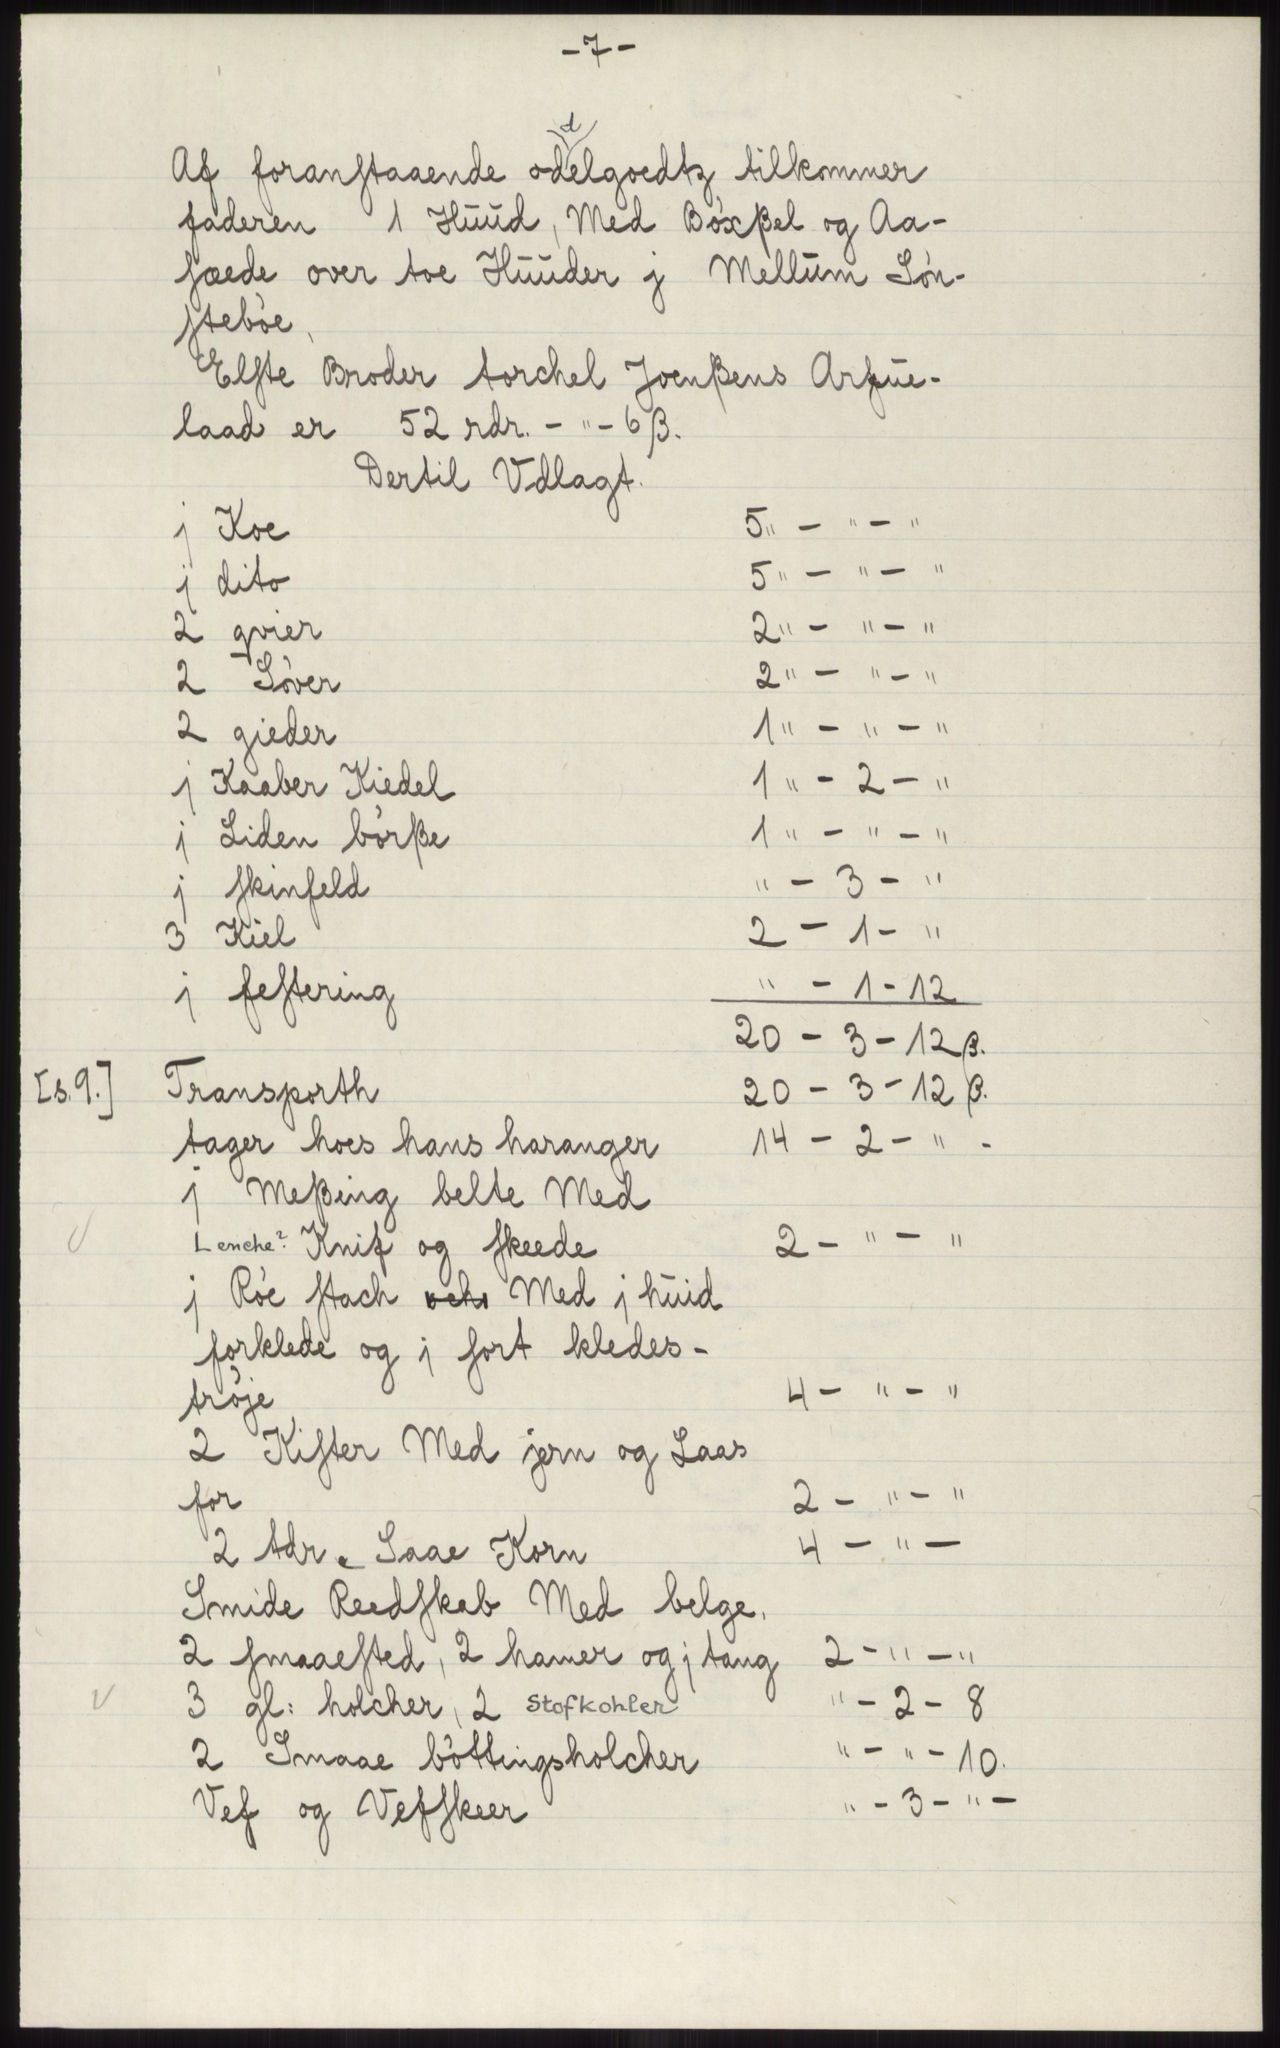 -7-
d
Af foranstaaende odelgoedtz tilkommer
faderen 1 Huud, Med Böxßel og Aa-
sæede over toe Huuder j Mellum Sön-
steböe,
Elste Broder torchel Joenßens Arfue-
laad er 52 rdr. - " - 6 ß.
Dertil Vdlagt.
j Koe 5" - " - "
j dito 5" - " - "
2 qvier 2" - " - "
2 Söver 2" - " - "
2 gieder 1" - " - "
j Kaaber Kiedel 1" - 2 - "
j Liden börße 1" - " - "
j skinfeld " - 3 - "
3 Kiel 2 - 1 - "
j festering " - 1 - 12
20 - 3 - 12 ß.
[s. 9.] Transporth 20 - 3 - 12 ß.
tager hoes hans haranger 14 - 2 - " -
j Meßing belte Med
Lenche? Knif og skeede 2 - " - "
j Röe stach Med j huid
forklede og j sort kledes-
tröje 4 - " - "
2 Kister Med jern og Laas
for 2 - " - "
2 tdr. Saae Korn 4 - " -
Smide Reedskab Med belge,
2 smaaested, 2 hamer og j tang 2 - " - "
3 gl: holcher, 2 Stofkohler " - 2 - 8
2 Smaae böttingsholcher " - " - 10.
Vef og Vefskeer " - 3 - " -